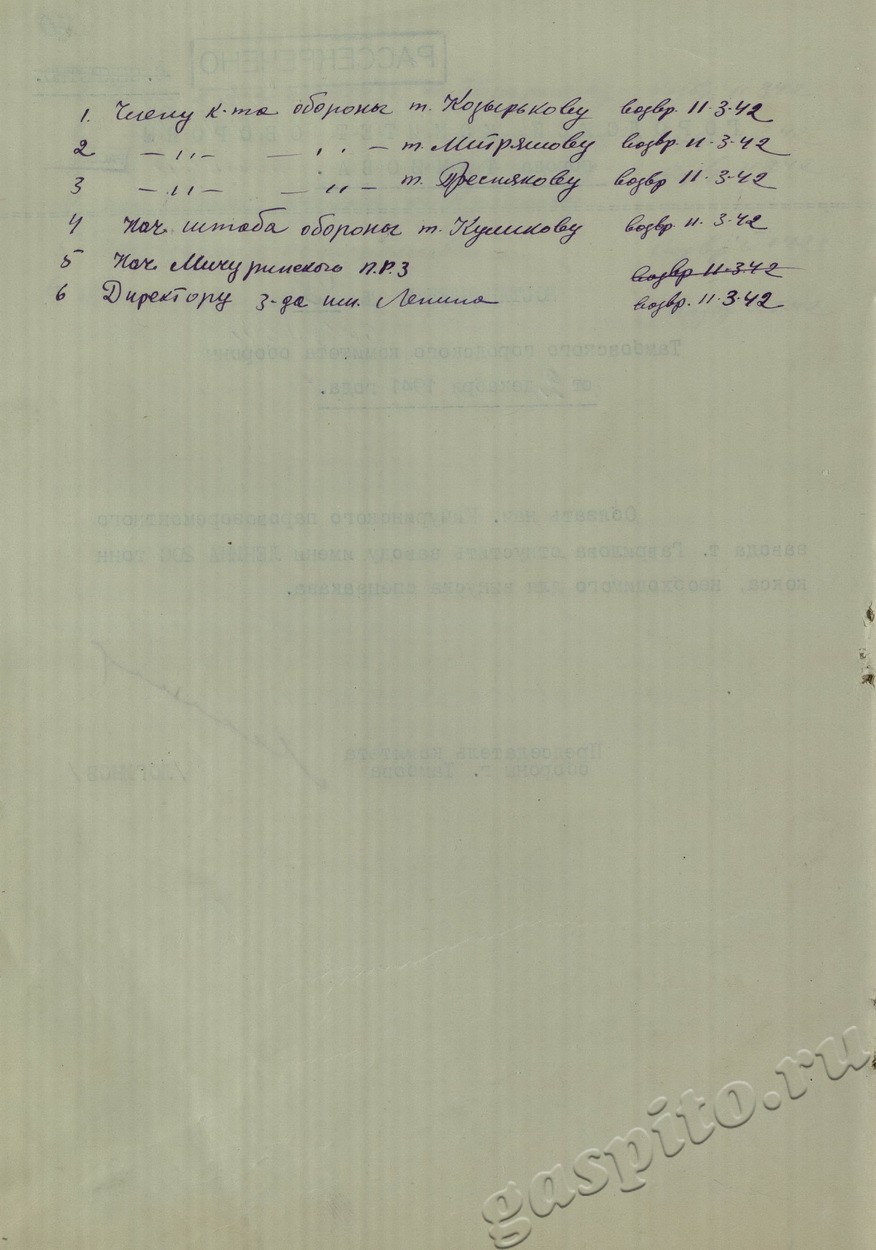 1. Члену к-та обороны т. Козырькову возвр. 11·3·42
2 —„— —„— т. Митряшову возвр. 11·3·42
3 —„— —„— т. Преснякову возвр 11·3·42
4 Нач. штаба обороны т. Куликову возвр 11·3·42
5 Нач. Мичуринского П.Р.З возвр 11·3·42
6 Директору з-да им. Ленина возвр. 11·3·42
РАССЕКРЕЧЕНО
Тамбовского городского комитета обороны
от декабря 1941 года.
Обязать нач. Мичуринского паровозоремонтного
завода т. Гаврилова отпустить заводу имени ЛЕНИНА 200 тонн
кокса, необходимого для выпуска спецзаказа.
Председатель комитета
обороны г. Тамбова
gaspito.ru